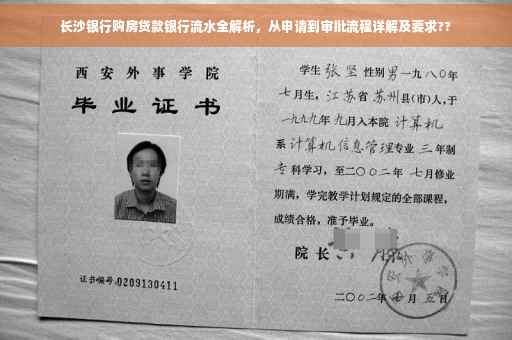 长沙银行购房贷款银行流水全解析，从申请到审批流程详解及要求??
西安外事学院
毕业证书
证书编号:0209130411
学生 张坚 性别男一九八〇年
七月生，江苏省 苏州县(市)人，于
一九九九年 九月入本院 计算机
系计算机信息管理专业 三 年制
专科学习，至二〇〇二年 七月修业
期满，学完教学计划规定的全部课程，
成绩合格，准予毕业。
院长
二〇〇二年 七 月 五 日